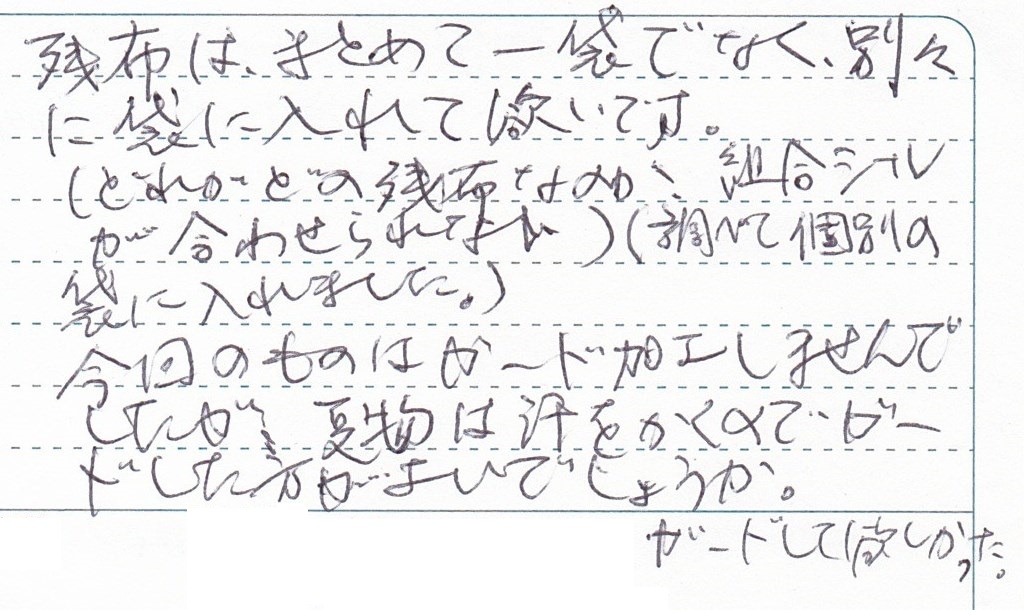 残布は、まとめて一袋でなく、別々
に袋に入れて欲いです。
(どれがどの残布なのか、組合シール
が合わせられてない)(調べて個別の
袋に入れました。)
今回のものはガード加工しませんで
したが、夏物は汗をかくのでガー
ドした方がよいでしょうか。
ガードして欲しかった。